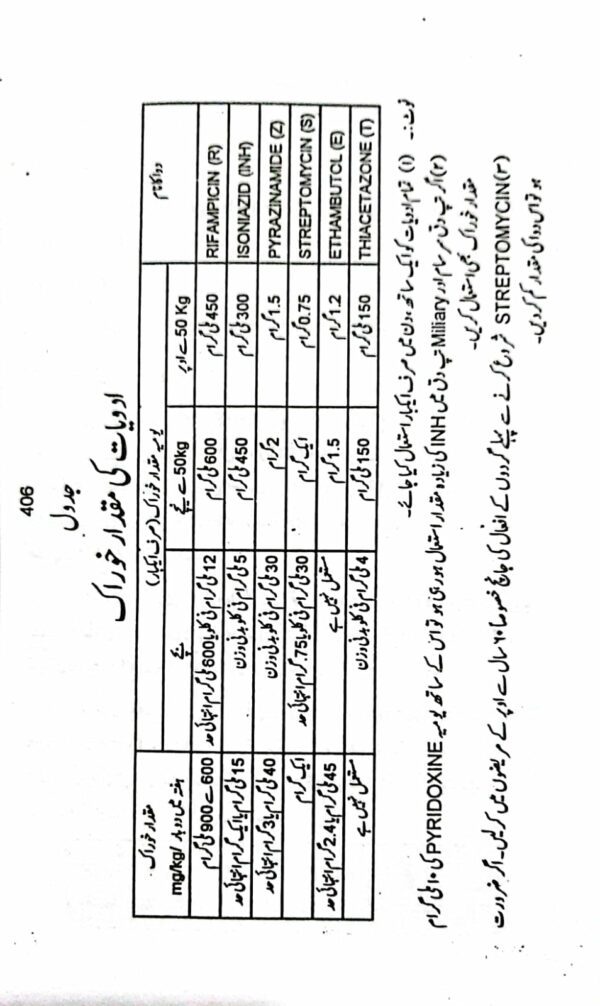 406
جدول
ادویات کی مقدار خوراک
دوا کا نام یومیہ مقدار خوراک (صرف ایکبار) مقدار خوراک
50 Kg سے اوپر 50kg سے نیچے بچے ہفتہ میں دوبار /mg/kg
RIFAMPICIN (R) 450 ملی گرام 600 ملی گرام 12 ملی گرام فی کلو یا 600 ملی گرام انتہائی حد 600 سے 900 ملی گرام
ISONIAZID (INH) 300 ملی گرام 450 ملی گرام 5 ملی گرام فی کلو بدنی وزن 15 ملی گرام یا ایک گرام انتہائی حد
PYRAZINAMIDE (Z) 1.5 گرام 2 گرام 30 ملی گرام فی کلو بدنی وزن 40 ملی گرام یا 3 گرام انتہائی حد
STREPTOMYCIN (S) 0.75 گرام ایک گرام 30 ملی گرام فی کلو یا 75. گرام انتہائی حد ایک گرام
ETHAMBUTOL (E) 1.2 گرام 1.5 گرام مستعمل نہیں ہے 45 ملی گرام یا 2.4 گرام انتہائی حد
THIACETAZONE (T) 150 ملی گرام 150 ملی گرام 4 ملی گرام فی کلو بدنی وزن مستعمل نہیں ہے
نوٹ:۔ (۱) تمام ادویات کو ایک ساتھ دن میں صرف ایکبار استعمال کیا جائے۔
(۲) اگر تپ دق سرسام اور Miliary تپ دق میں INH کی زیادہ مقدار استعمال ہو رہی ہو تو اس کے ساتھ یومیہ PYRIDOXINE کی ۱۰ ملی گرام
مقدار خوراک بھی استعمال کریں۔
(۳) STREPTOMYCIN شروع کرنے سے پہلے گردوں کے افعال کی جانچ خصوصا ۴۰ سال سے اوپر کے مریضوں میں کر لیں۔ اگر ضرورت
ہو تو اس دوا کی مقدار کم کر دیں۔